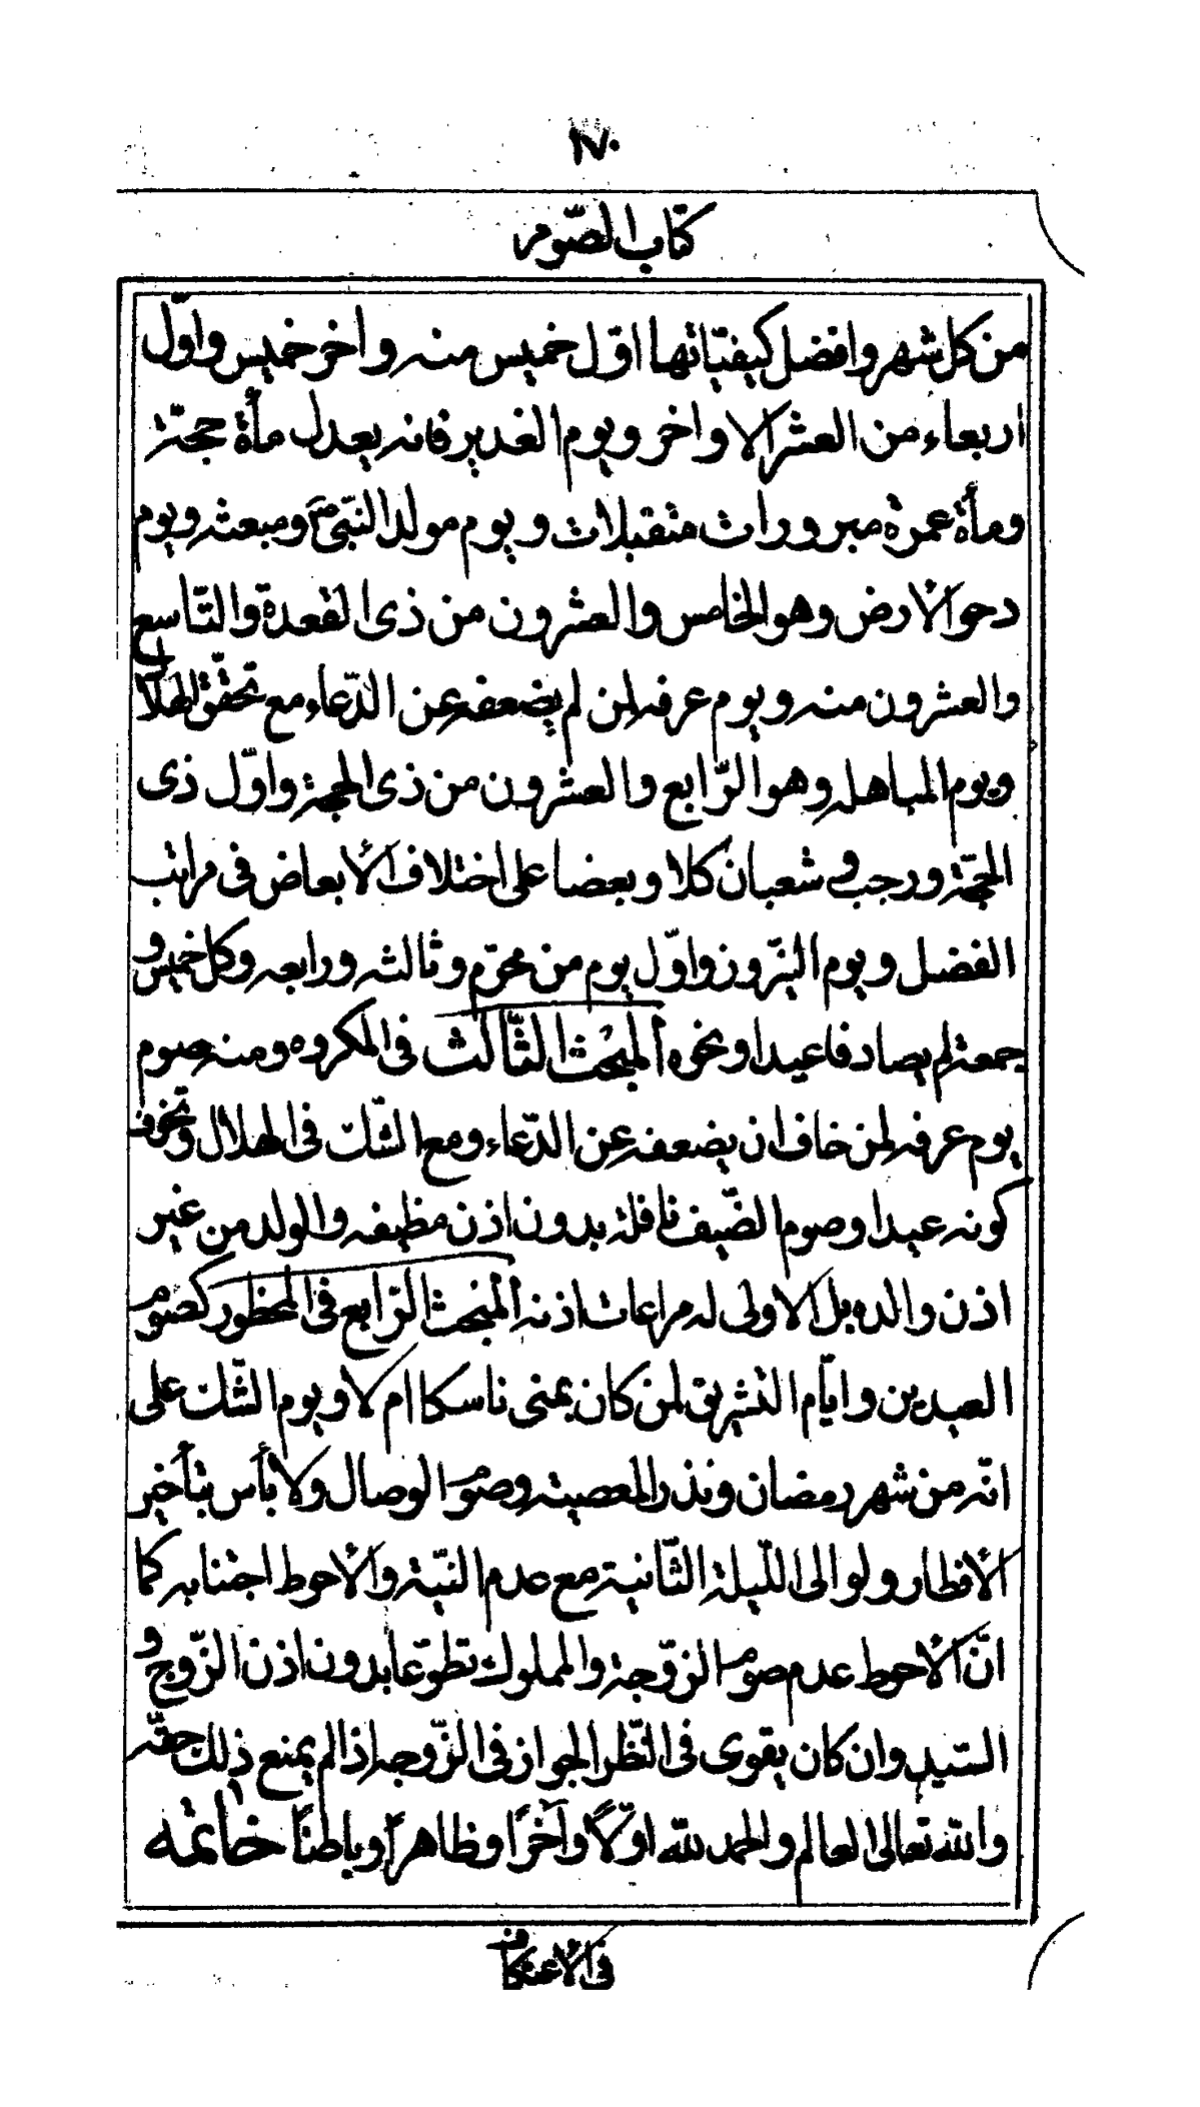 ١٧٠
كتاب الصّوم
من كل شهر وافضل كيفيّاتها اوّل خميس منه واخر خميس واوّل
اربعاء من العشر الاواخر ويوم الغدير فانه يعدل مأة حجّة
ومأة عمرة مبرورات متقبلات ويوم مولد النبىّ ص ومبعثه ويوم
دحو الأرض وهو الخامس والعشرون من ذى القعدة والتّاسع
والعشرون منه ويوم عرفه لمن لم يضعفه عن الدّعاء مع تحقّق الهلال
ويوم المباهله وهو الرّابع والعشرون من ذى الحجة واوّل ذى
الحجّة ورجب و شعبان كلا وبعضا على اختلاف الأبعاض فى مراتب
الفضل ويوم النيّروز واوّل يوم من محرّم وثالثه ورابعه وكل خميس و
جمعة لم يصادفا عيدا ونحوه المبحث الثّالث فى المكروه ومنه صوم
يوم عرفه لمن خاف ان يضعفه عن الدّعاء ومع الشّك فى الهلال وتخوف
كونه عيدا وصوم الضّيف نافلة بدون اذن مظيفه والولد من غير
اذن والده بل الاولى له مراعات اذنه المبحث الرّابع فى المحظور كصوم
العيدين وايّام التشريق لمن كان بمنى ناسكا ام لا ويوم الشّك على
انّه من شهر رمضان ونذر المعصية وصوم الوصال ولا بأس بتأخير
الأفطار ولو الى اللّيلة الثّانية مع عدم النيّة والأحوط اجتنابه كما
انّ الأحوط عدم صوم الزّوجة والمملوك تطوّعا بدون اذن الزّوج و
السّيد وان كان يقوى فى النّظر الجواز فى الزّوجه اذا لم يمنع ذلك حقّه
والله تعالى العالم والحمد لله اوّلًا وآخرًا وظاهرًا وباطنًا خاتمه
فى الأعتكاف